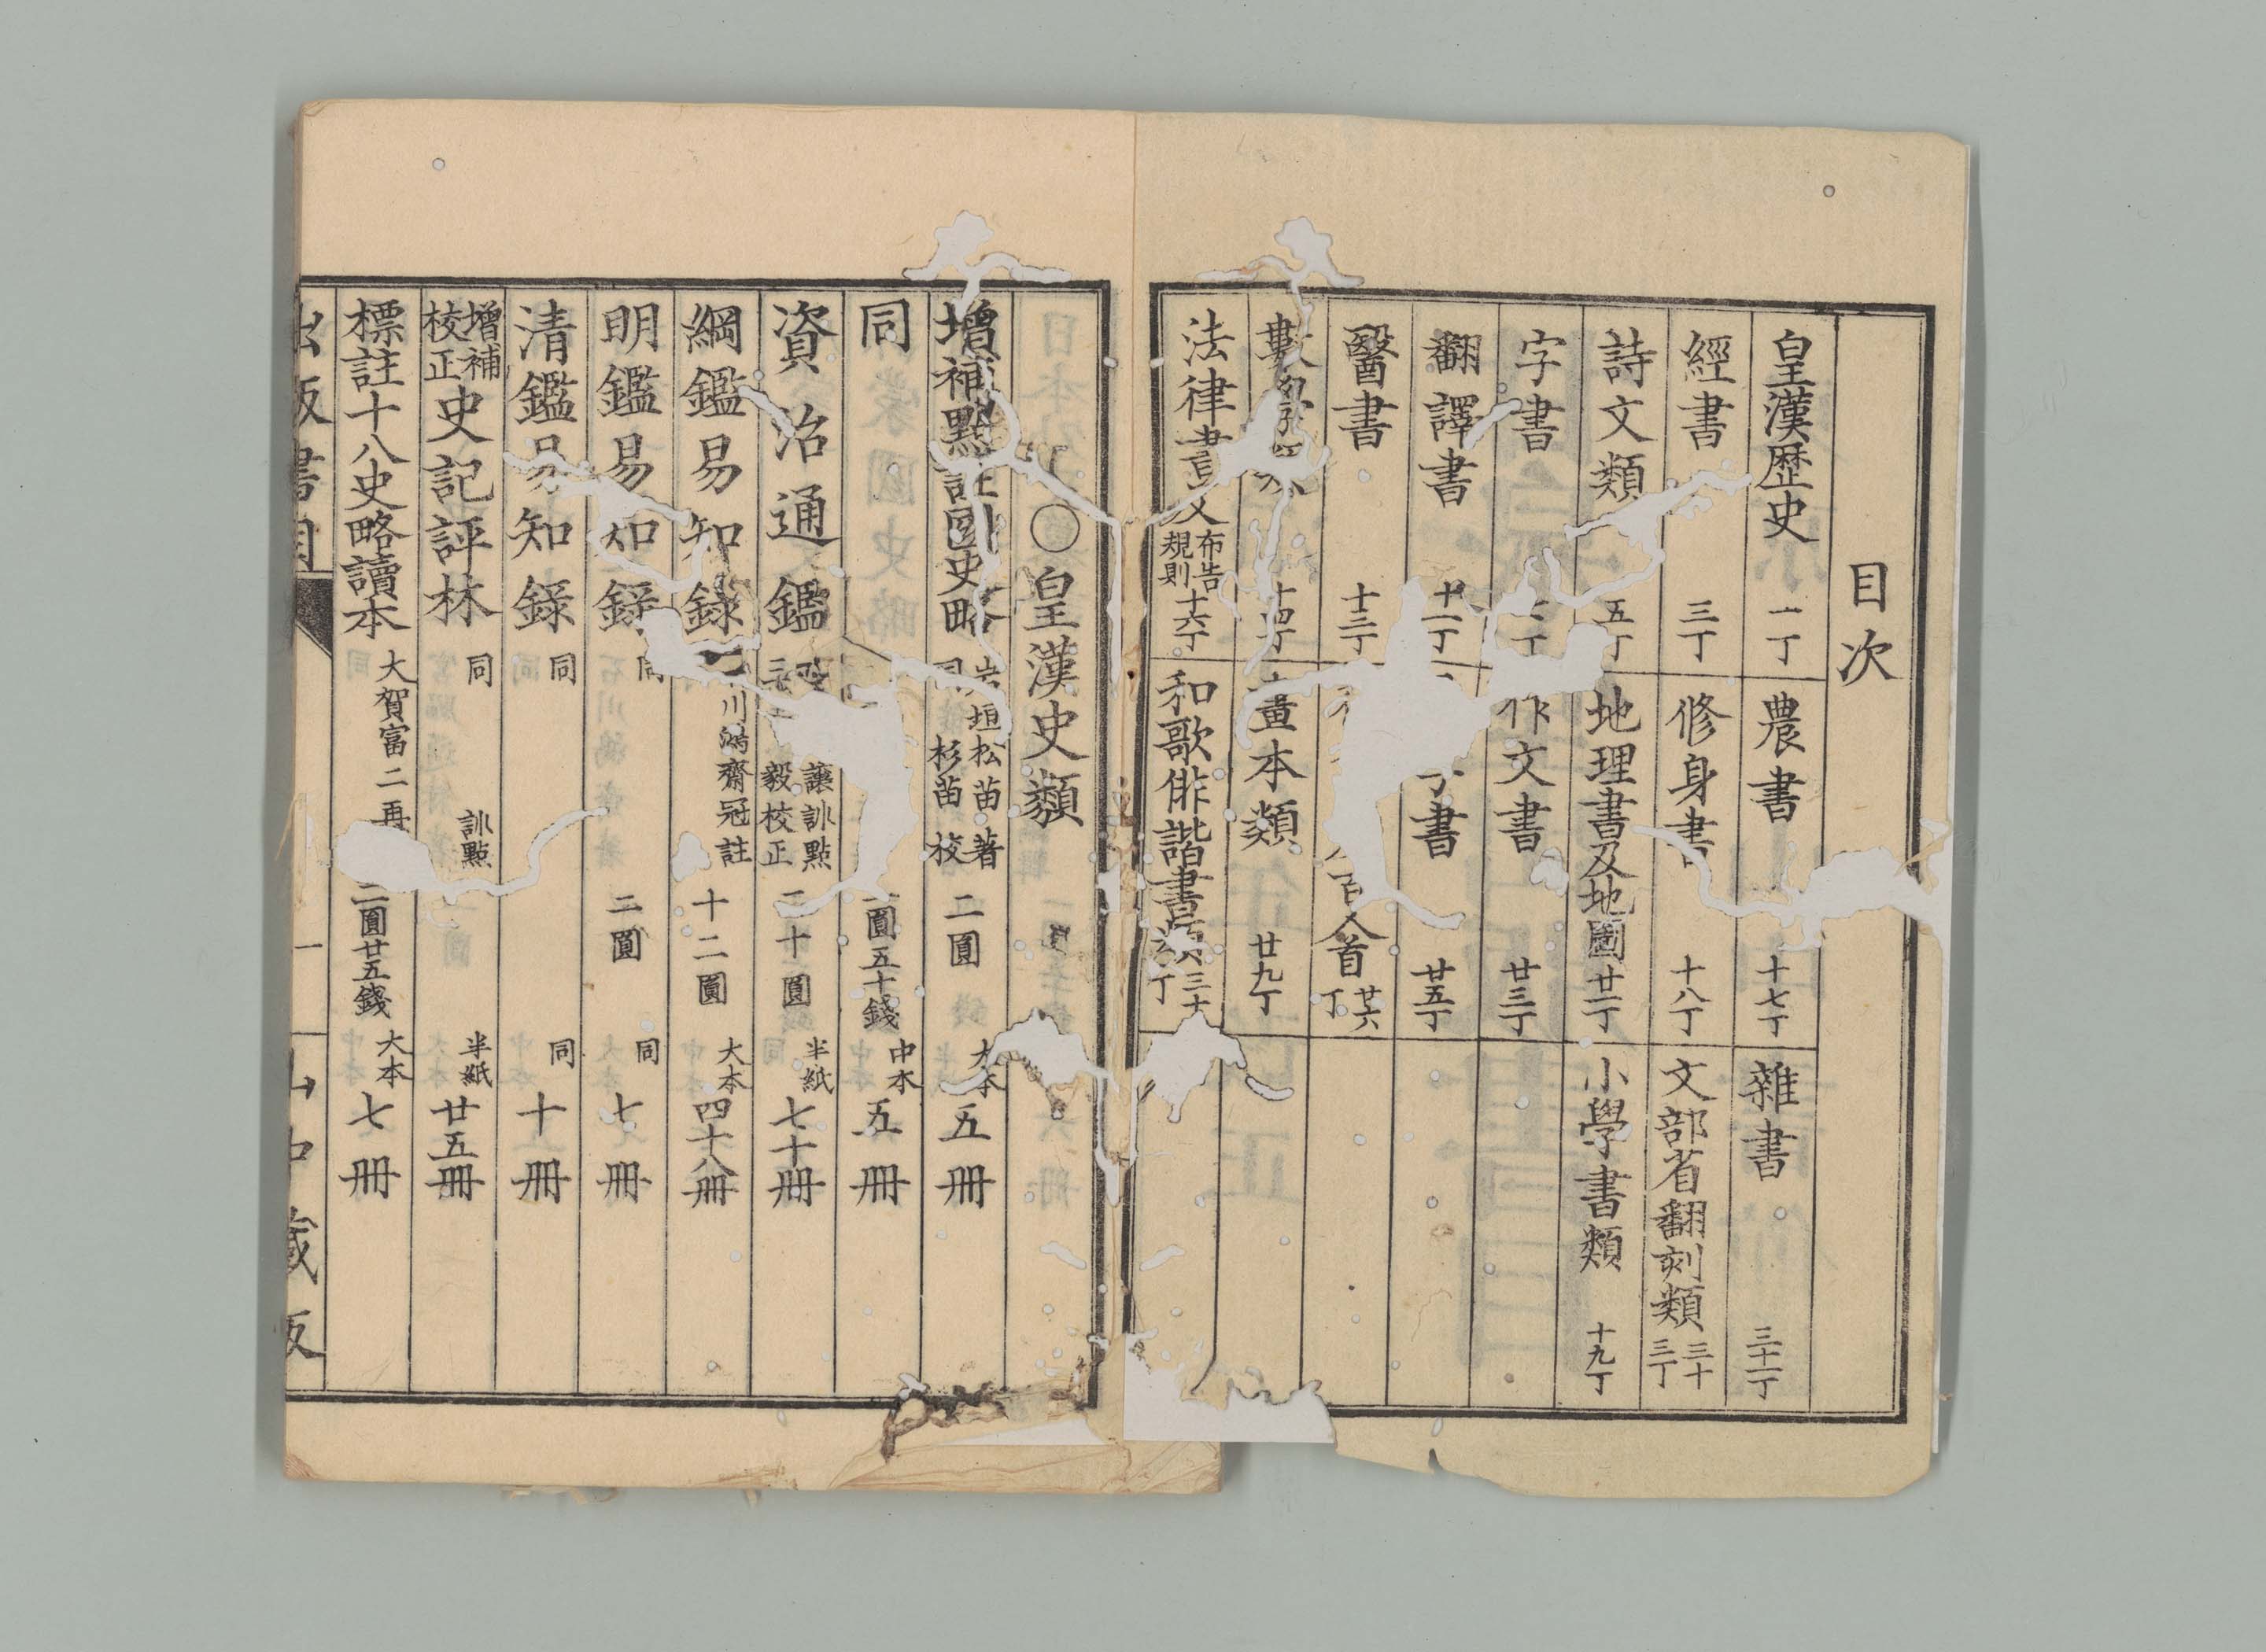 目次
皇漢歴史 一丁
經書 三丁
詩文類 五丁
字書 丁
翻譯書 十一丁
醫書 十三丁
數學 十四丁
法律書及布告規則 十六丁
農書 十七丁
修身書 十八丁
地理書及地圖 廿一丁
作文書 廿三丁
書 廿五丁
人首 廿六丁
畫本類 廿九丁
和歌俳諧書類 三十丁
雜書 三十一丁
文部省翻刻類 三十三丁
小學書類 十九丁
〇皇漢史類
增補點註國史略 岩垣松苗著 同杉苗校 二圓 大本 五冊
同 圓五十錢 中本 五冊
資治通鑑 讓訓點 毅校正 二十圓 半紙 七十冊
綱鑑易知録 川鴻齋冠註 十二圓 大本 四十八冊
明鑑易知録 同 二圓 同 七冊
清鑑易知録 同 同 十冊
增補校正史記評林 同 訓點 半紙 廿五冊
標註十八史略讀本 大賀富二再 二圓廿五錢 大本 七冊
出版書目 一 山中藏版